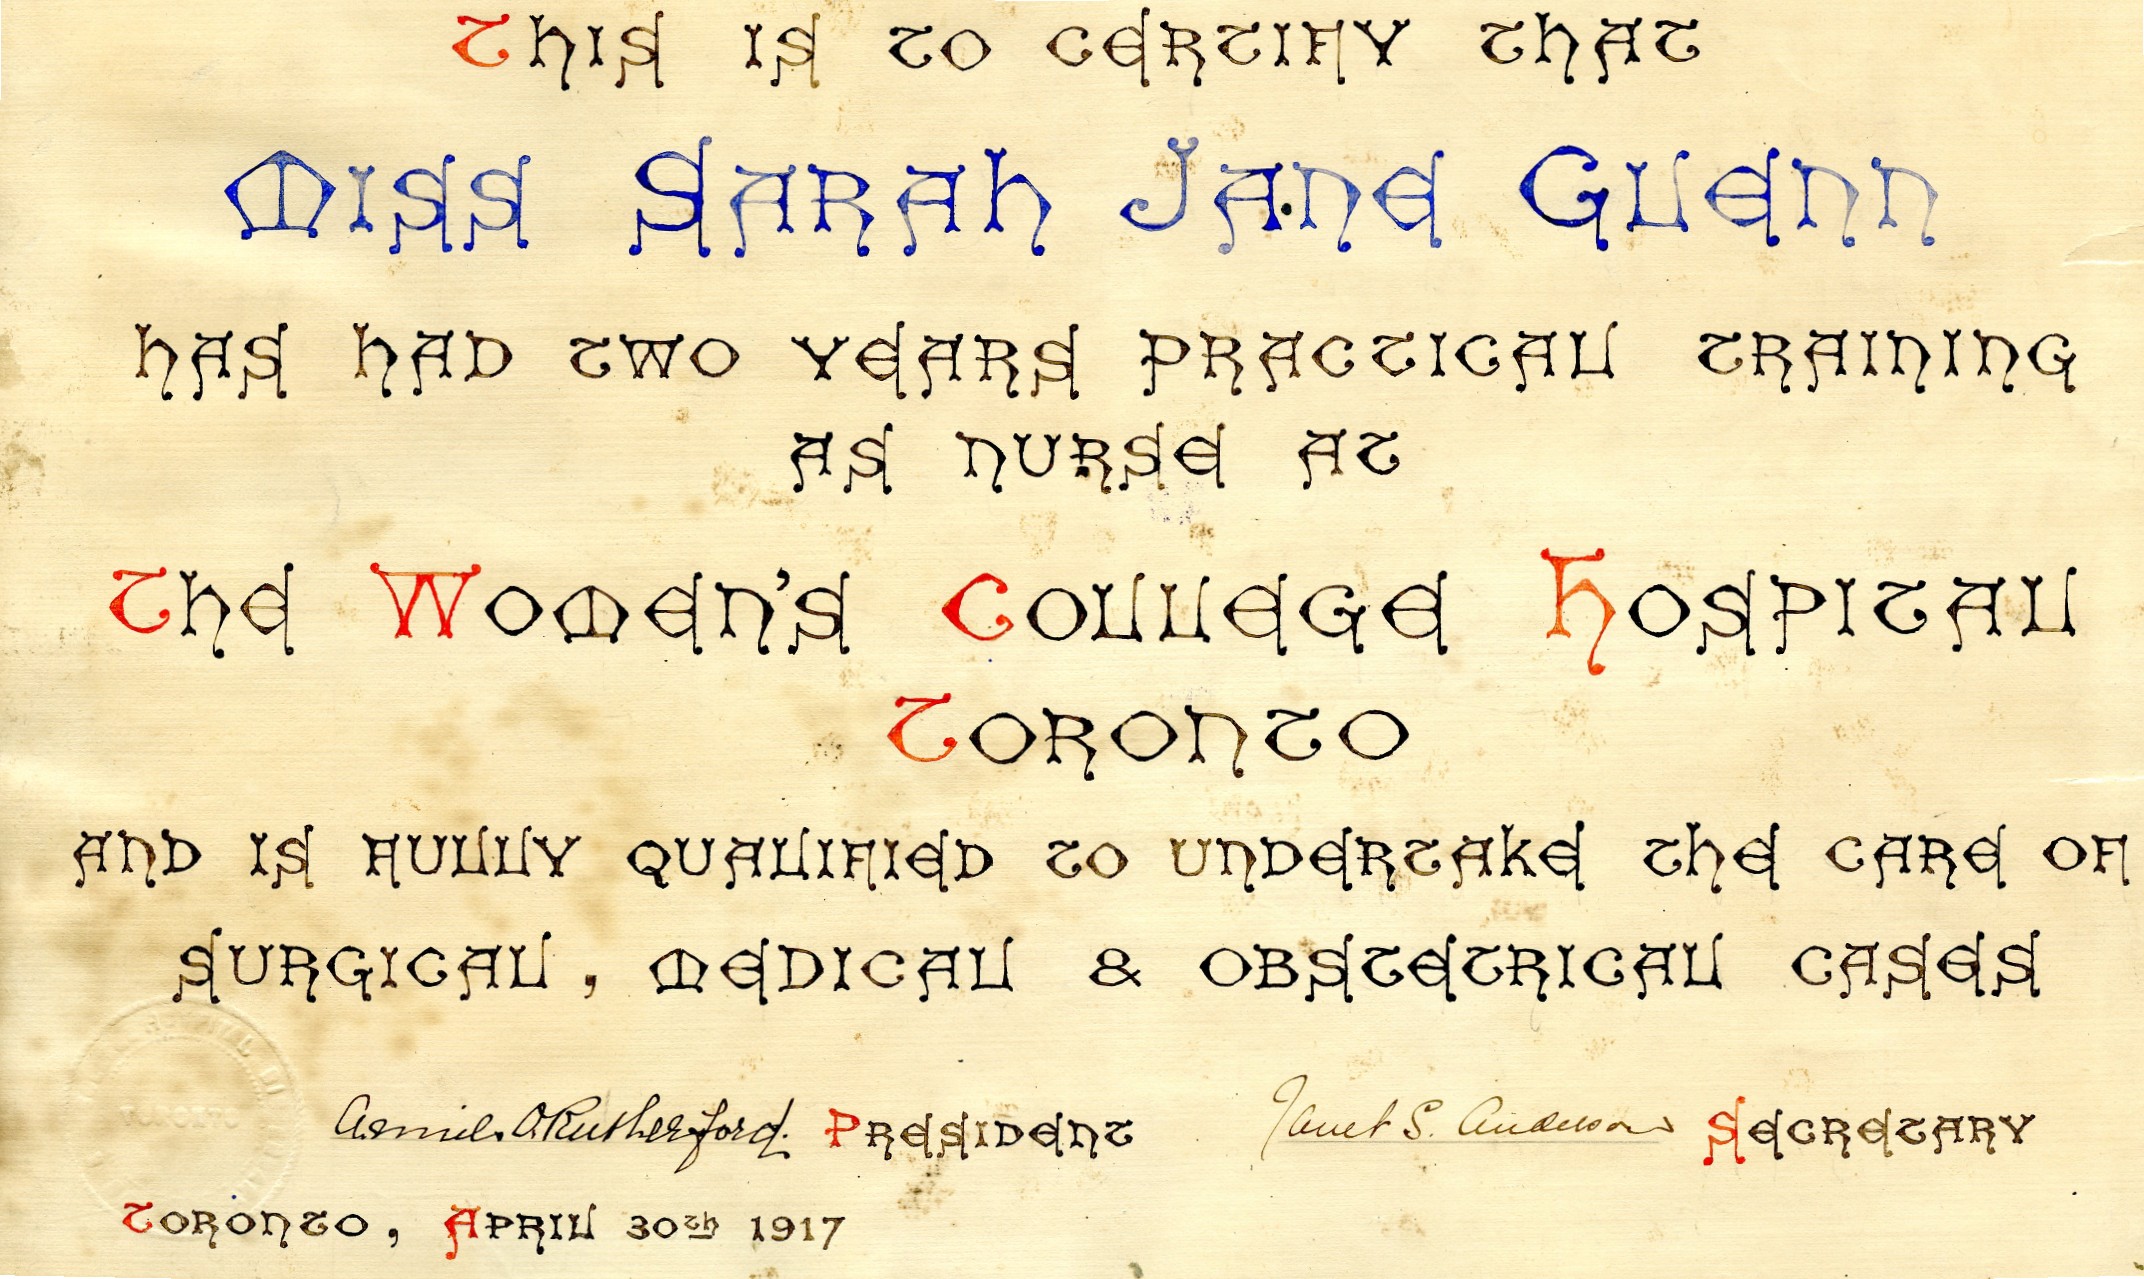 This is to certify that
Miss Sarah Jane Glenn
has had two years practical training
as nurse at
The Women's College Hospital
Toronto
and is fully qualified to undertake the care of
surgical, medical & obstetrical cases
Rutherford. President Janet S. Anderson Secretary
TORONTO
Toronto, April 30th 1917